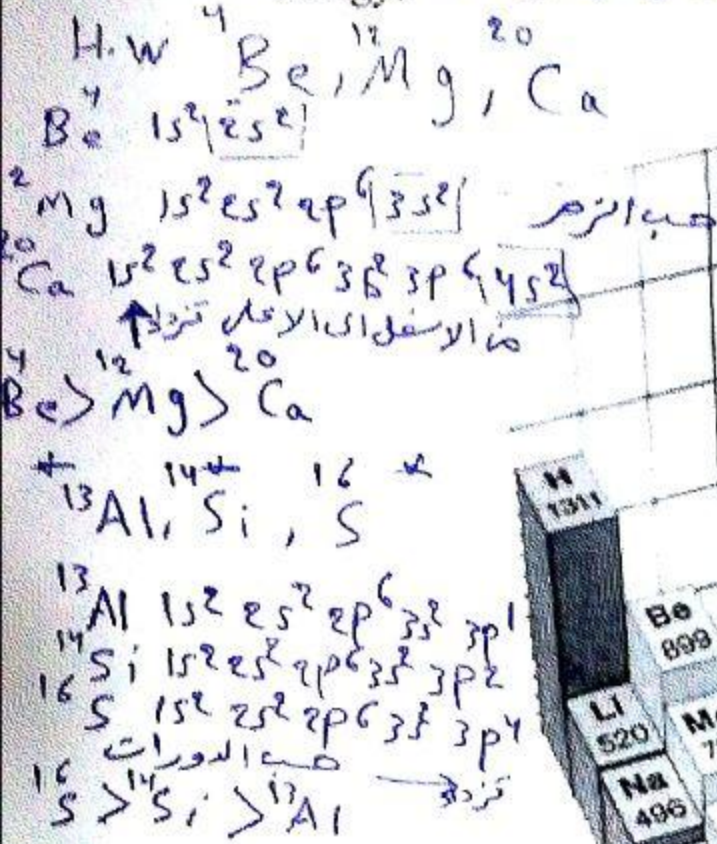 H.W ⁴Be, ¹²Mg, ²⁰Ca
⁴Be 1s² 2s²
²Mg 1s² 2s² 2p⁶ 3s² حسب الزمر
²⁰Ca 1s² 2s² 2p⁶ 3s² 3p⁶ 4s²
من الاسفل الى الاعلى تزداد ↑
⁴Be > ¹²Mg > ²⁰Ca
¹³Al, ¹⁴Si, ¹⁶S
¹³Al 1s² 2s² 2p⁶ 3s² 3p¹
¹⁴Si 1s² 2s² 2p⁶ 3s² 3p2
¹⁶S 1s² 2s² 2p6 3s² 3p⁴
حسب الدورات → تزداد
¹⁶S > ¹⁴Si > ¹³Al
H
1311
Be
899
Li
520
M
7
Na
496